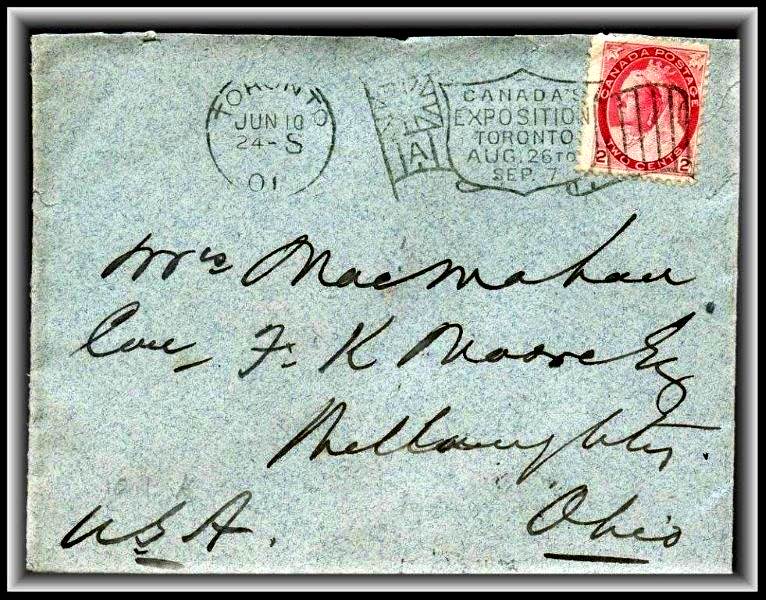 TORONTO
JUN 10
24-S
01
CANADA'S
EXPOSITION
TORONTO
AUG. 26 TO
SEP. 7
CANADA POSTAGE
2 TWO CENTS 2
Mrs MacMahon
Care F. K Moore Esq
Ohio
U S A.